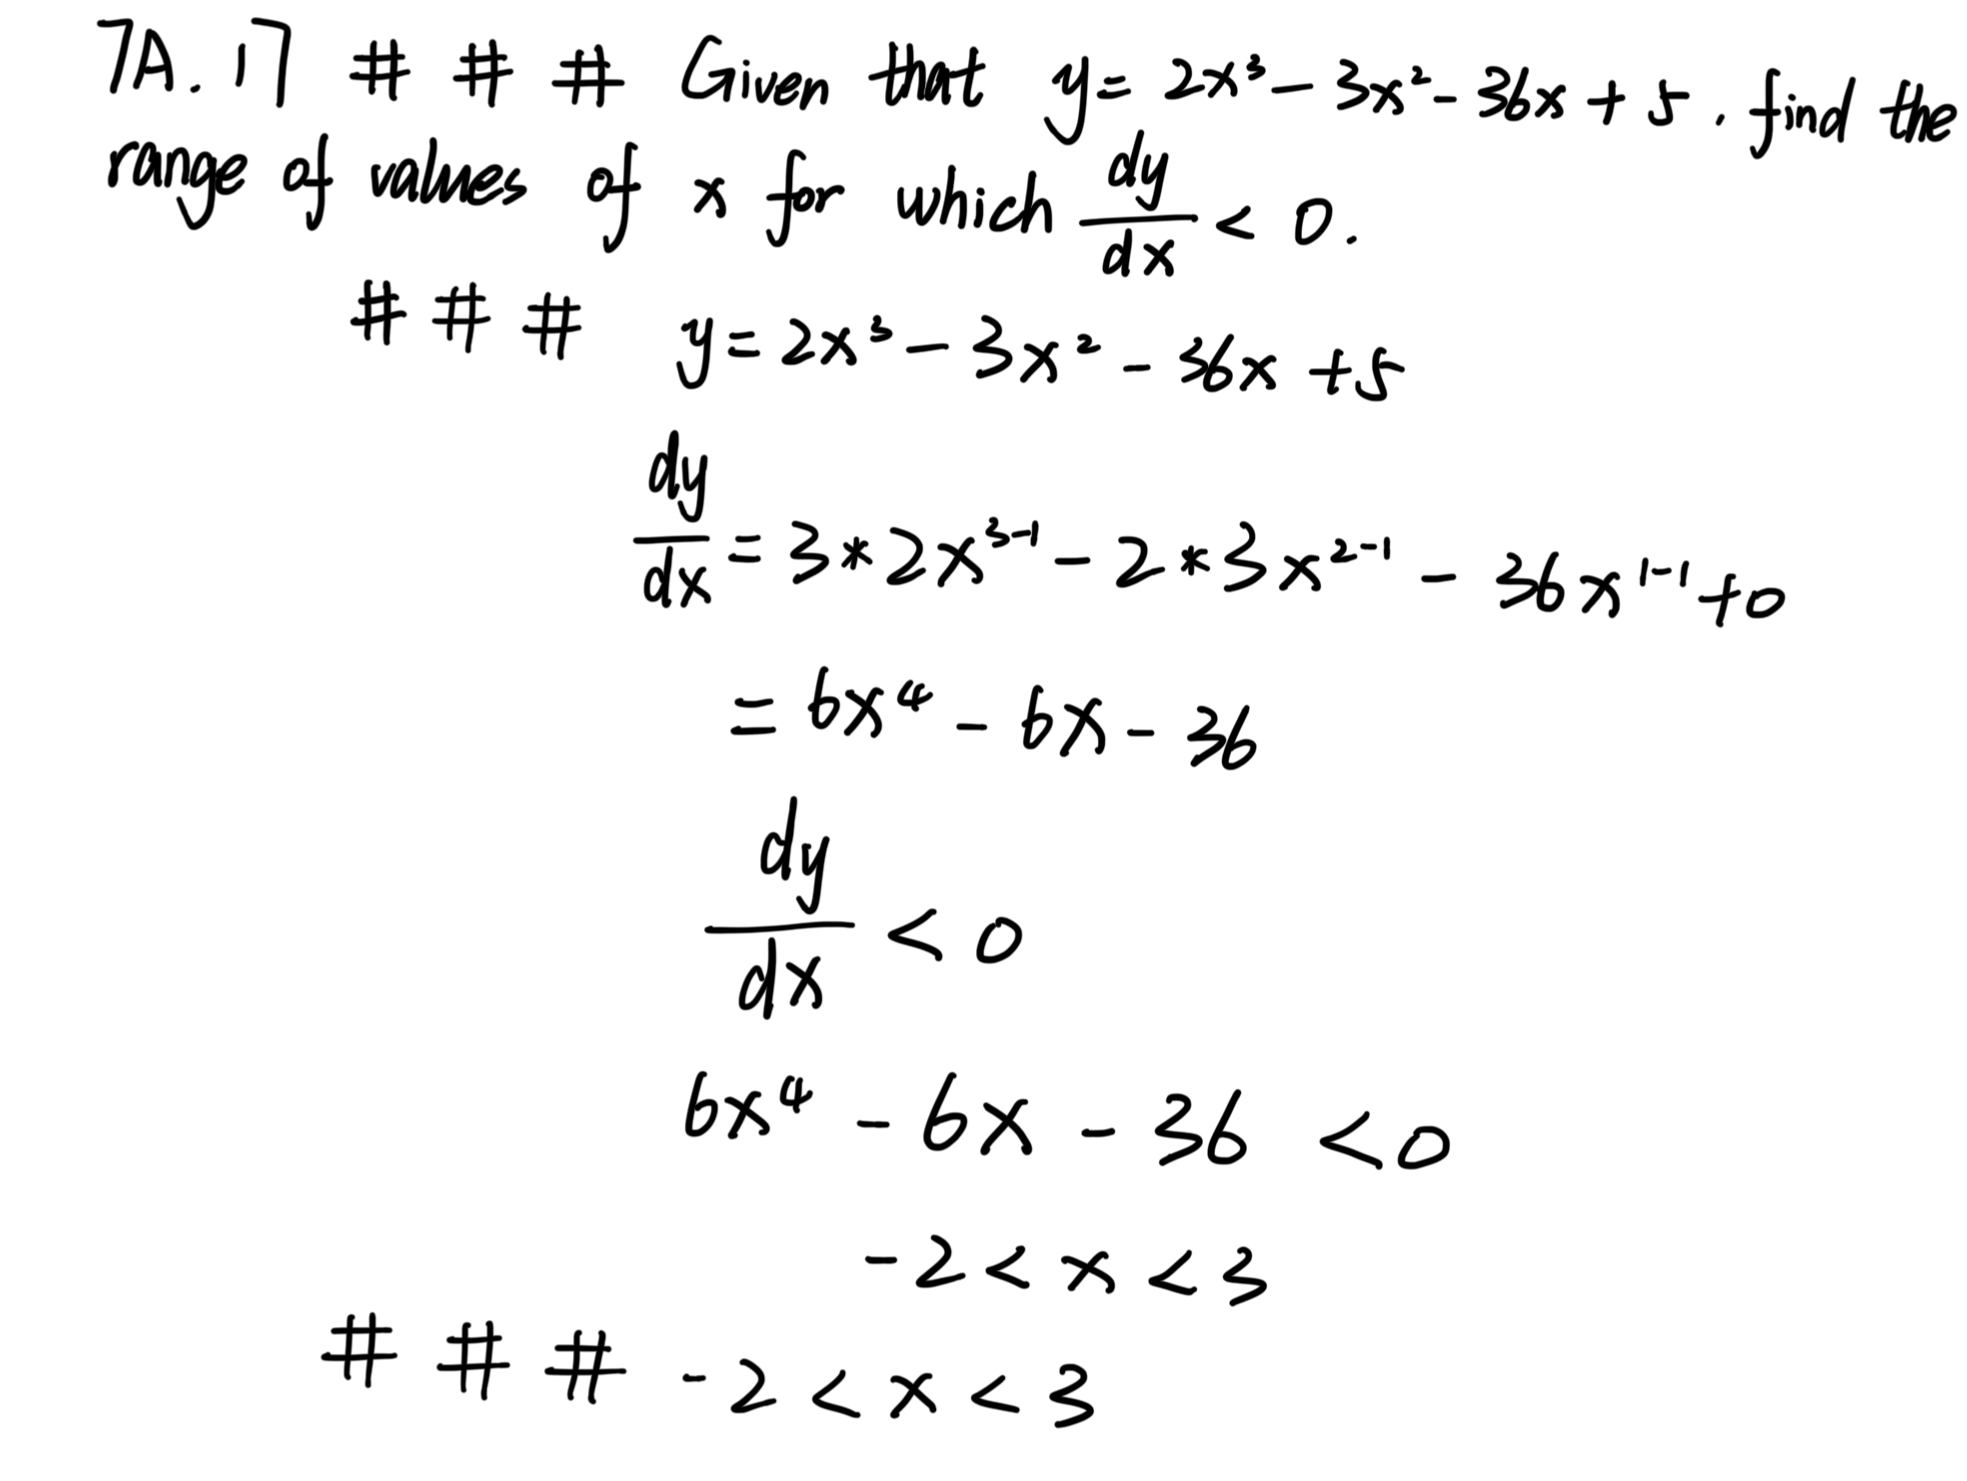 7A.17 # # # Given that y = 2x³ - 3x² - 36x + 5 . find the
range of values of x for which dy/dx < 0.
# # # y = 2x³ - 3x² - 36x + 5
dy/dx = 3*2x³⁻¹ - 2*3x²⁻¹ - 36x¹⁻¹ + 0
= 6x⁴ - 6x - 36
dy/dx < 0
6x⁴ - 6x - 36 < 0
-2 < x < 3
# # # -2 < x < 3